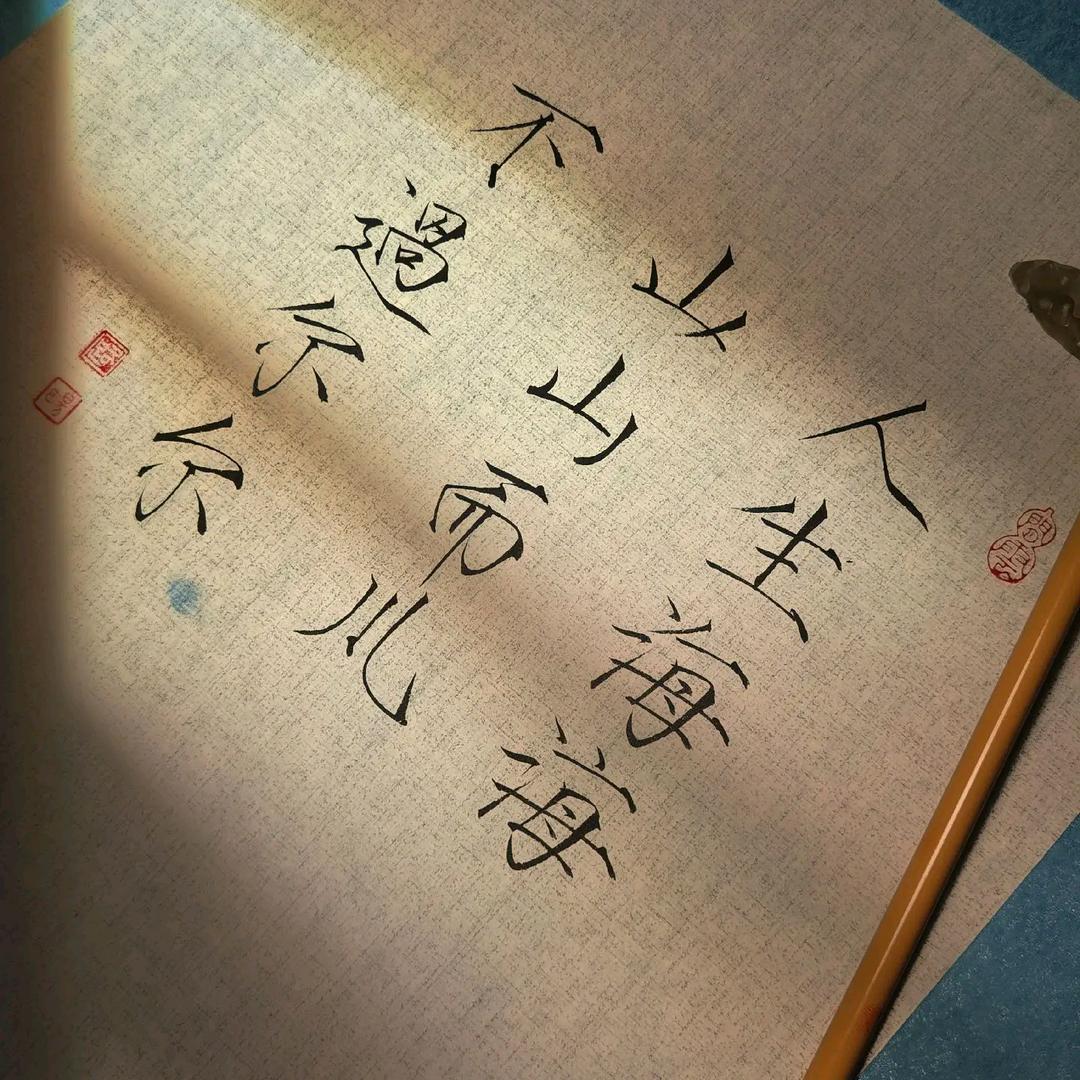 人生海海
山山而川
不過尔尔